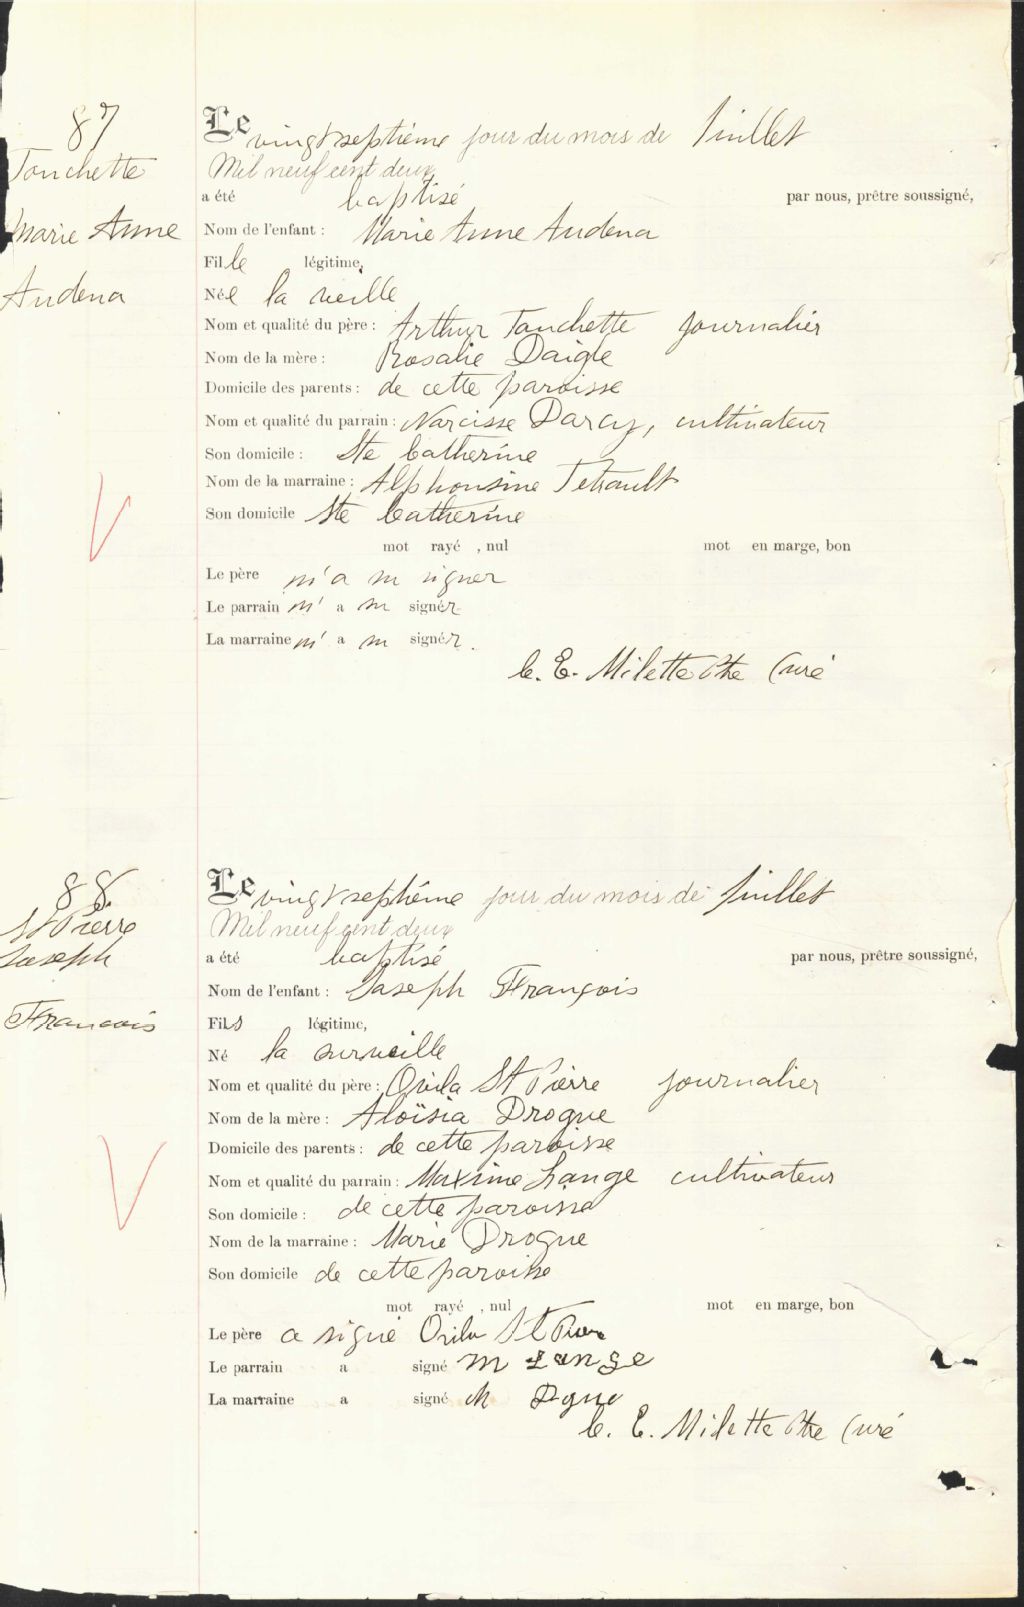 87
Touchette
Marie Anne
Audena
Le vingt septième jour du mois de Juillet
Mil neuf cent deux
a été baptisé par nous, prêtre soussigné,
Nom de l'enfant : Marie Anne Audena
Fille légitime,
Née la veille
Nom et qualité du père : Arthur Touchette journalier
Nom de la mère : Rosalie Daigle
Domicile des parents : de cette paroisse
Nom et qualité du parrain : Narcisse Darcy, cultivateur
Son domicile : Ste Catherine
Nom de la marraine : Alphonsine Tetrault
Son domicile Ste Catherine
mot rayé , nul mot en marge, bon
Le père n'a su signer
Le parrain n' a su signer
La marraine n' a su signer.
C. E. Milette Ptre Curé
88.
St Pierre
Joseph
Francois
Le vingt septième jour du mois de Juillet
Mil neuf cent deux
a été baptisé par nous, prêtre soussigné,
Nom de l'enfant : Joseph François
Fils légitime,
Né la surveille
Nom et qualité du père : Ovila St Pierre journalier
Nom de la mère : Aloïsia Drogue
Domicile des parents : de cette paroisse
Nom et qualité du parrain : Maxime Lange cultivateur
Son domicile : de cette paroisse
Nom de la marraine : Marie Drogue
Son domicile de cette paroisse
mot rayé , nul mot en marge, bon
Le père a signé Ovila St Pierre
Le parrain a signé M Lange
La marraine a signé M
C. E. Milette Ptre Curé